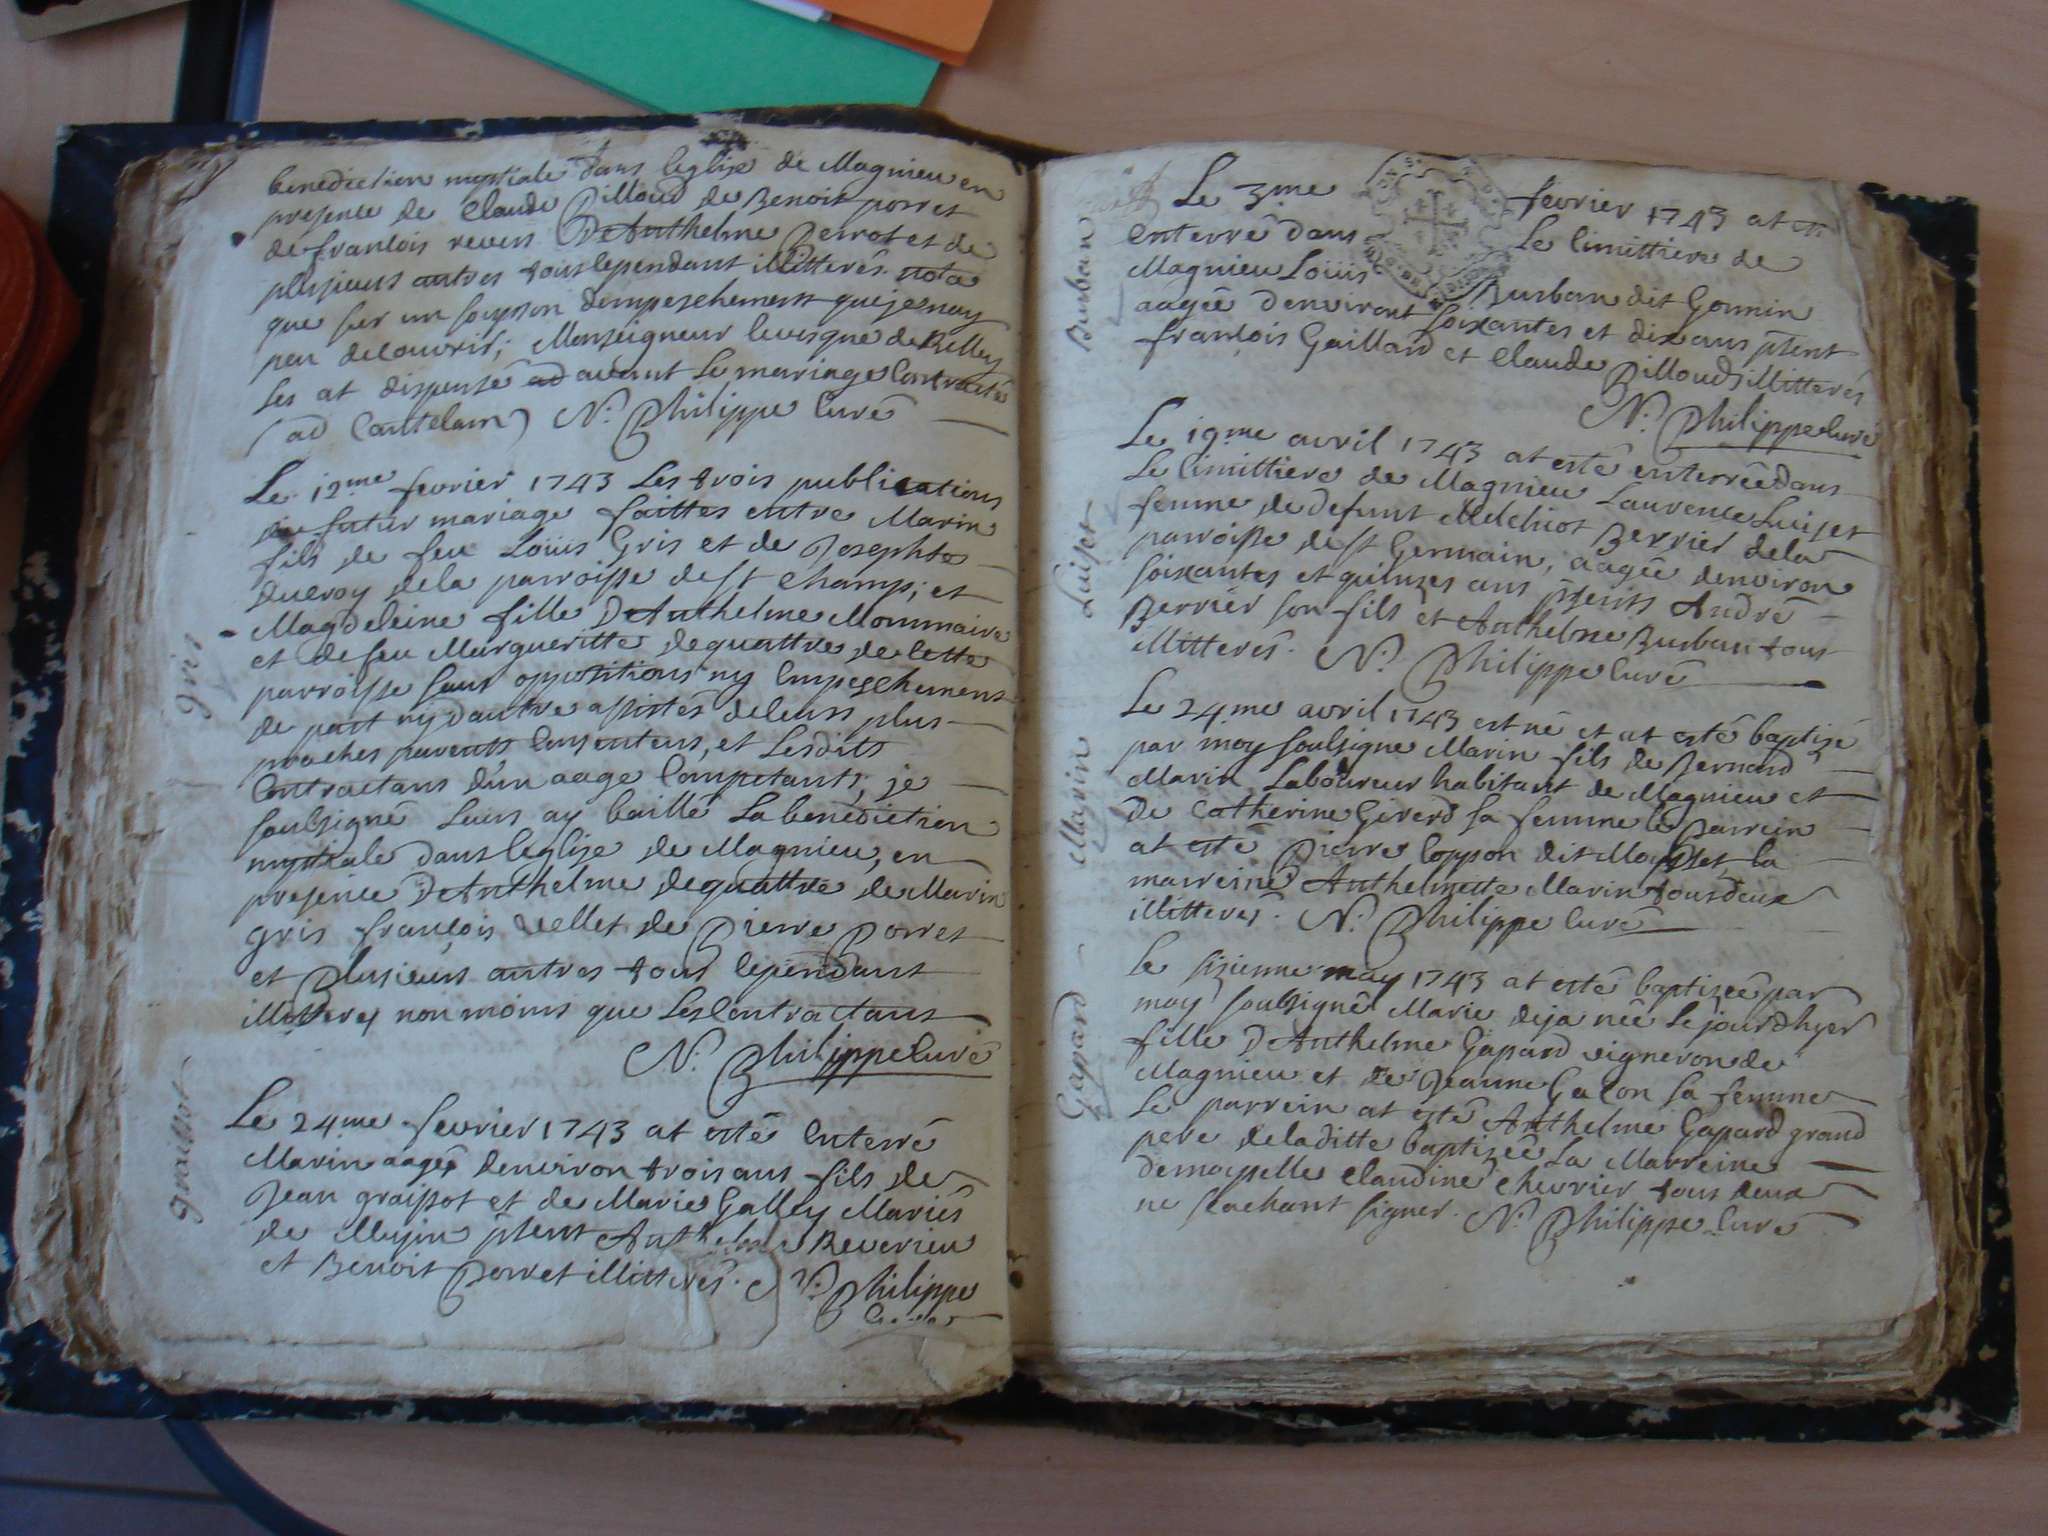 benediction nuptiale dans leglise de Magnieu en
presence de Claude Pilloud de Benoit porret
de francois revers DeAnthelme Perrot et de
plusieurs autres tous cependant illitterés. nota
que sur un soupson dempeschement que je nay
peu decouvrir; Monseigneur levesque de Belley
Les at dispensé avant Le mariage Contracté
(ad Cautelam) N. Philippe Curé
Le 12me fevrier 1743 Les trois publications
du futur mariage faittes entre Marin
fils de feu Loüis Gris et de Josephte
Ducroy de la parroisse de St Champ; et
Magdeleine fille DeAnthelme Mommaire
et de feu Margueritte dequattre de Cette
parroisse sans oppositions ny Empeschemens
de part ny dautre assistés de leurs plus
proches parents Consentens, et Lesdits
Contractans d'un aage Competants, je
soubsigné Leurs ay baillé La benediction
nuptiale dans leglise de Magnieu, en
presence DeAnthelme dequattre de Marin
gris francois vellet de Pierre Porret
et plusieurs autres tous Cependant
illitteres non moins que Les Contractans
N. Philippe Curé
Le 24me fevrier 1743 at esté Enterré
Marin aagé denviron trois ans fils de
Jean graissot et de Marie Galley Mariés
de Musin pſent Anthelme Reverieu
et Benoit Porret illitterés. N. Philippe
gris
Le 3me fevrier 1743 at
Enterré dans Le Cimittiere de
Magnieu Loüis Burban dit Gonnin
aagée denviront soixantes et dix ans pſent
francois Gaillard et Claude Pilloud illitterés
N. Philippe Curé
Le 19me avril 1743 at esté enterrée dans
Le Cimittiere de Magnieu Laurence Luiset
femme de defunt Melchiot Berrier de la
parroisse de St Germain, aagée denviron
soixantes et quinzes ans pſents André
Berrier son fils et Anthelme Burban tous
illitterés. N. Philippe Curé
Le 24me avril 1743 est né et at esté baptizé
par moy soubsigne Marin fils de Bernard
Marin Laboureur habitant de Magnieu et
de Catherine Girerd sa femme le Parrein
at esté Pierre Coppon dit la
marreine Anthelmette Marin tous deux
illitteres. N. Philippe Curé
Le sizieme may 1743 at esté baptizée par
moy soubsigné Marie deja née Le jour dhyer
fille DAnthelme Gapard vigneron de
Magnieu et de Jeanne Galon sa femme
Le parrein at esté Anthelme Gapard grand
pere de laditte baptizée La Marreine
demoyselle Claudine Chevrier tous deux
ne scachant signer. N. Philippe Curé
Burban
Luiset
Marin
Gapard